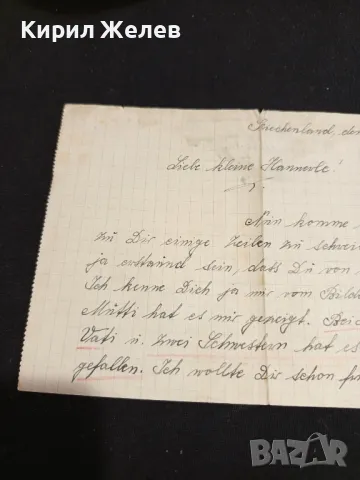 Кирил Желев
Griechenland, den
Liebe kleine Hannerle!
I.
Nun komme
zu Dir einige Zeilen zu schrei
ja erstaunt sein, dats Du von
Ich kenne Dich ja nur vom Bilde
Mutti hat es mir gezeigt. Bei
Vati u. zwei Schwestern hat es
gefallen. Ich wollte Dir schon fr
BAZAR